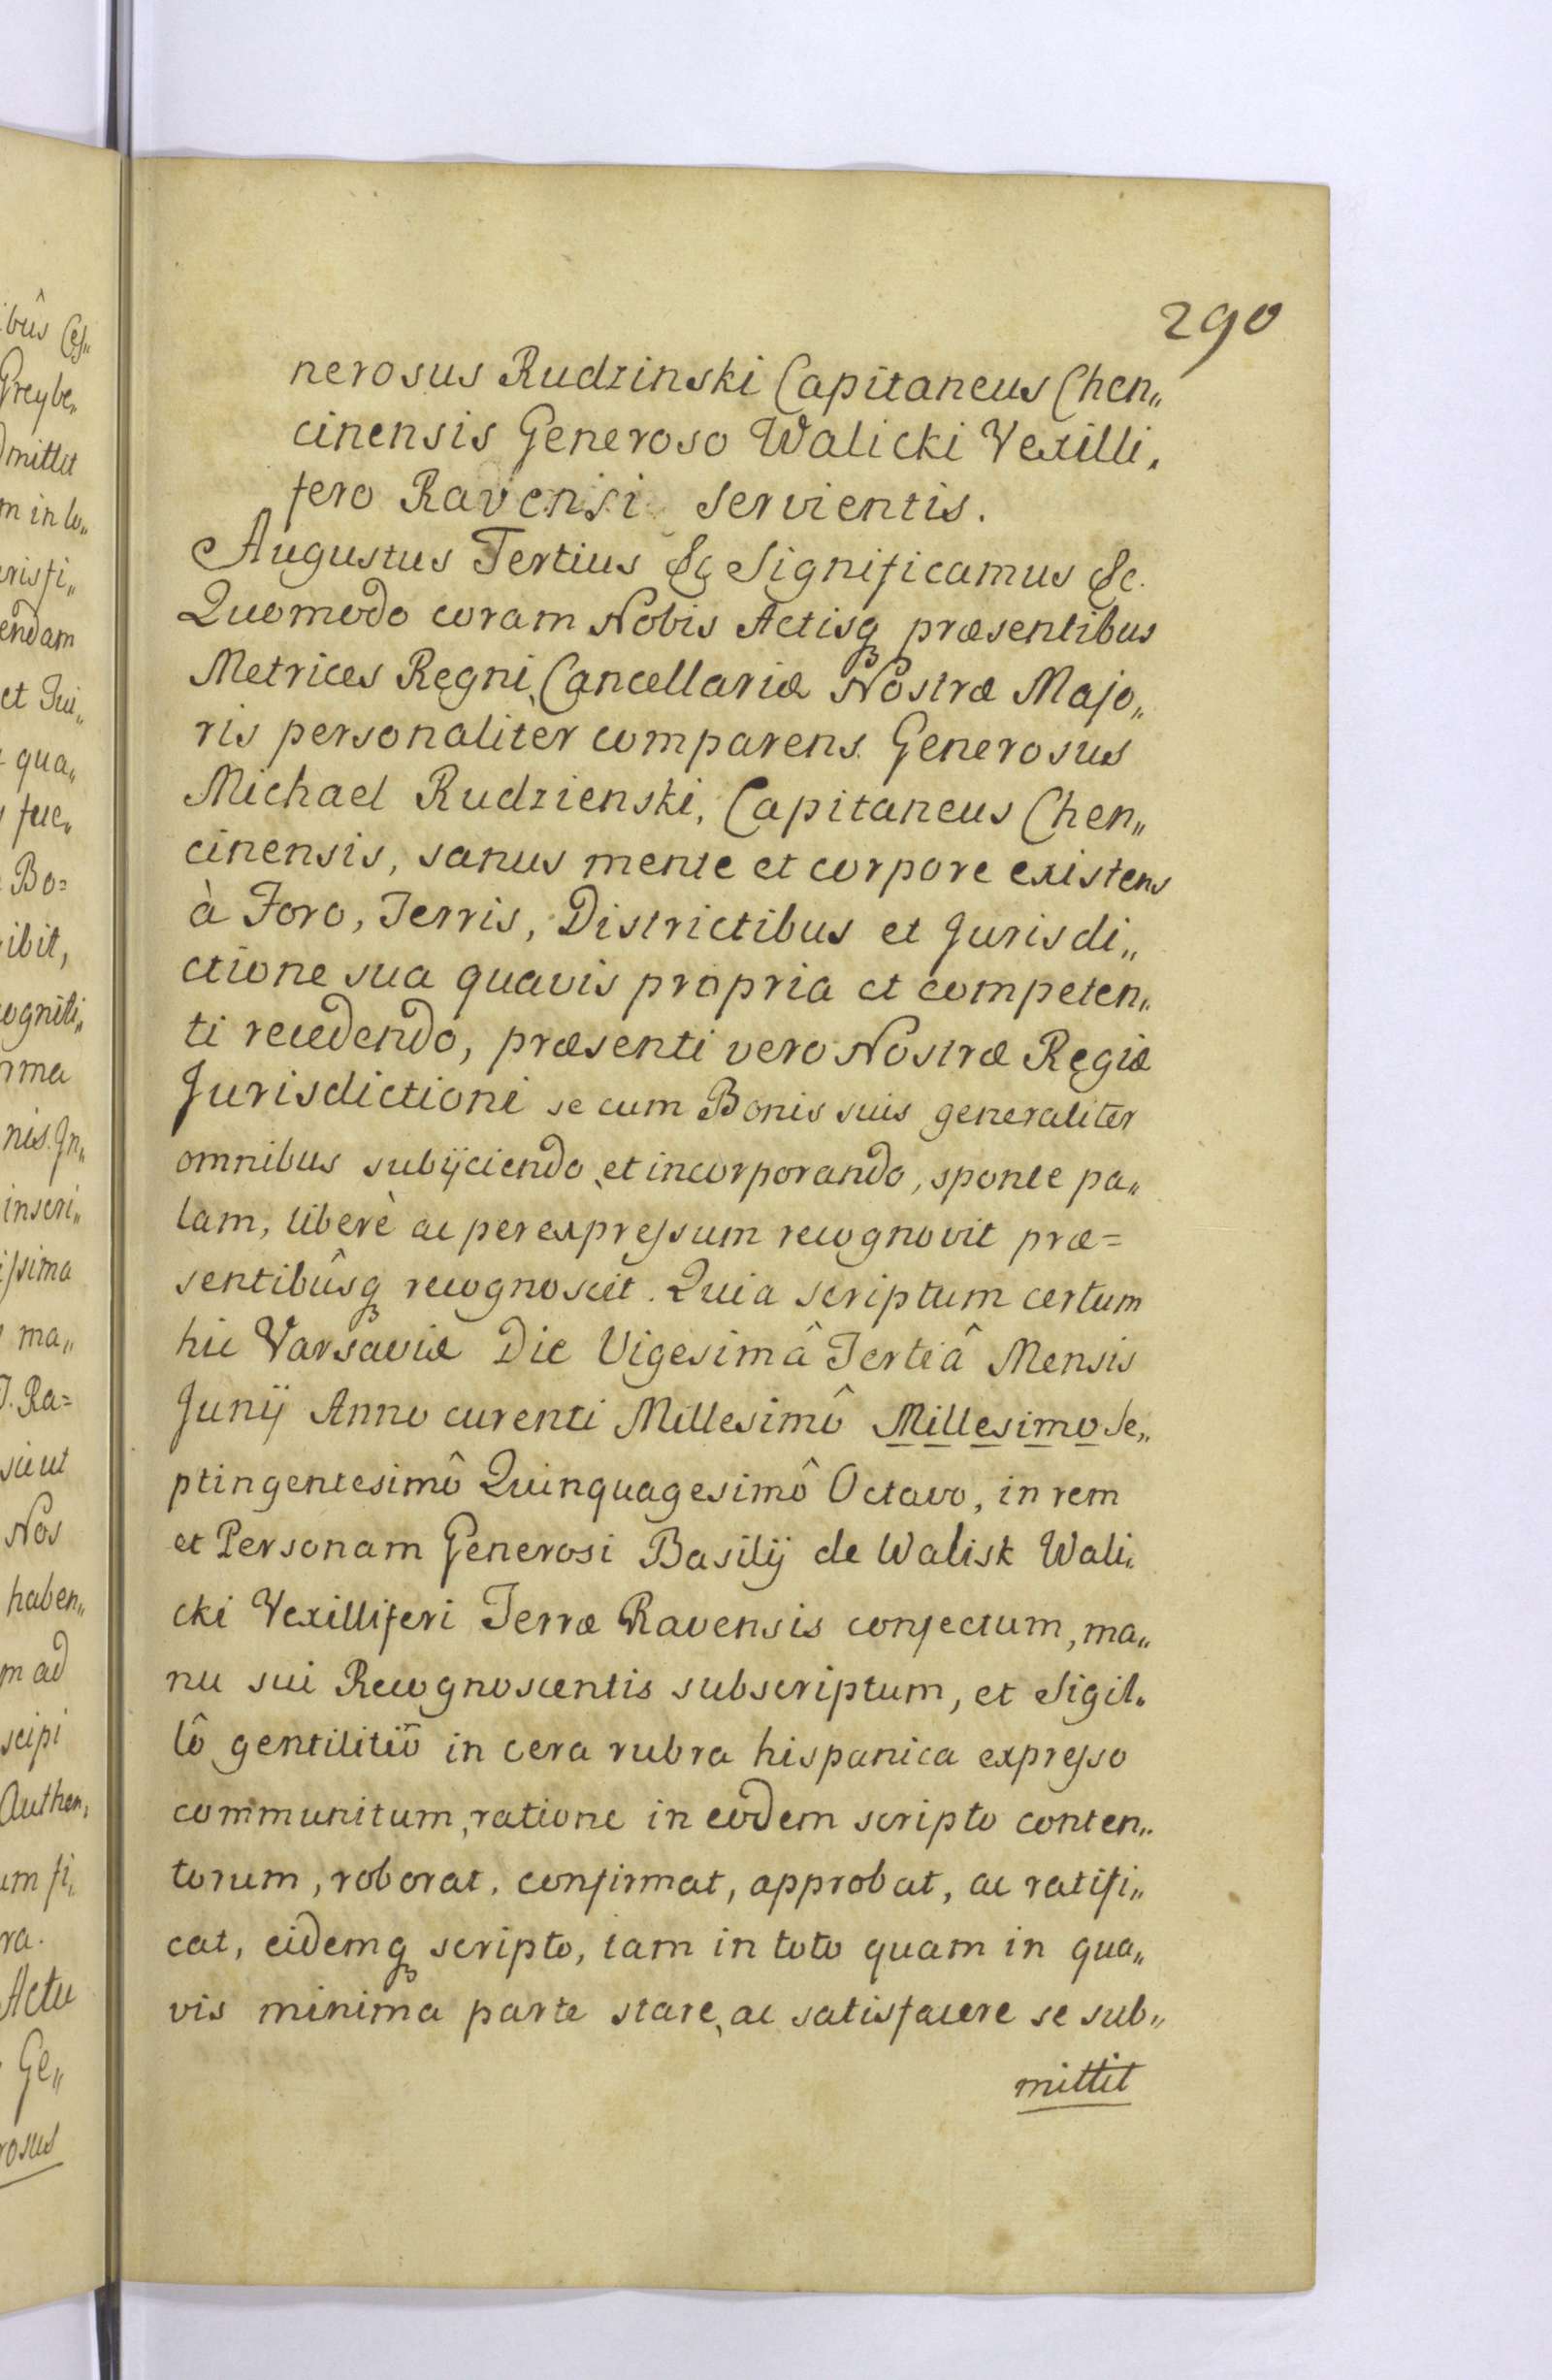 290
nerosus Rudzinski Capitaneus Chen„
cinensis Generoso Walicki Vexilli„
fero Ravensi servientis.
Augustus Tertius &c Significamus &c.
Quomodo coram Nobis Actisq præsentibus
Metrices Regni, Cancellariæ Nostræ Majo„
ris personaliter comparens Generosus
Michael Rudzienski, Capitaneus Chen„
cinensis, sanus mente et corpore existens
à Foro, Terris, Districtibus et Jurisdi„
ctione sua quavis propria et competen„
ti recedendo, præsenti vero Nostræ Regiæ
Jurisdictioni se cum Bonis suis generaliter
omnibus subijciendo, et incorporando, sponte pa„
lam, liberè ac per expressum recognovit præ=
sentibûsq recognoscit. Quia scriptum certum
hic Varsaviæ Die Vigesimâ Tertiâ Mensis
Junij Anno curenti Millesimô Millesimo Se„
ptingentesimô Quinquagesimô Octavo, in rem
et Personam Generosi Basilij de Walisk Wali„
cki Vexilliferi Terræ Ravensis confectum, ma„
nu sui Recognoscentis subscriptum, et Sigil„
lô gentilitiô in cera rubra hispanica expresso
communitum, ratione in eodem scripto conten„
torum, roborat, confirmat, approbat, ac ratifi„
cat, eidemq scripto, tam in toto quam in qua„
vis minima parte stare, ac satisfacere se sub„
mittit
ibûs Ces„
Greybe„
mittit
m in lo„
risfi„
endam
et Jui„
qua„
fue„
Bo=
ibit,
cogniti„
rma
nis. Jn„
inscri„
issima
ma„
J. Ra=
sicut
Nos
haben„
m ad
scipi
Authen„
um fi„
ra.
Actu
Ge„
rosus